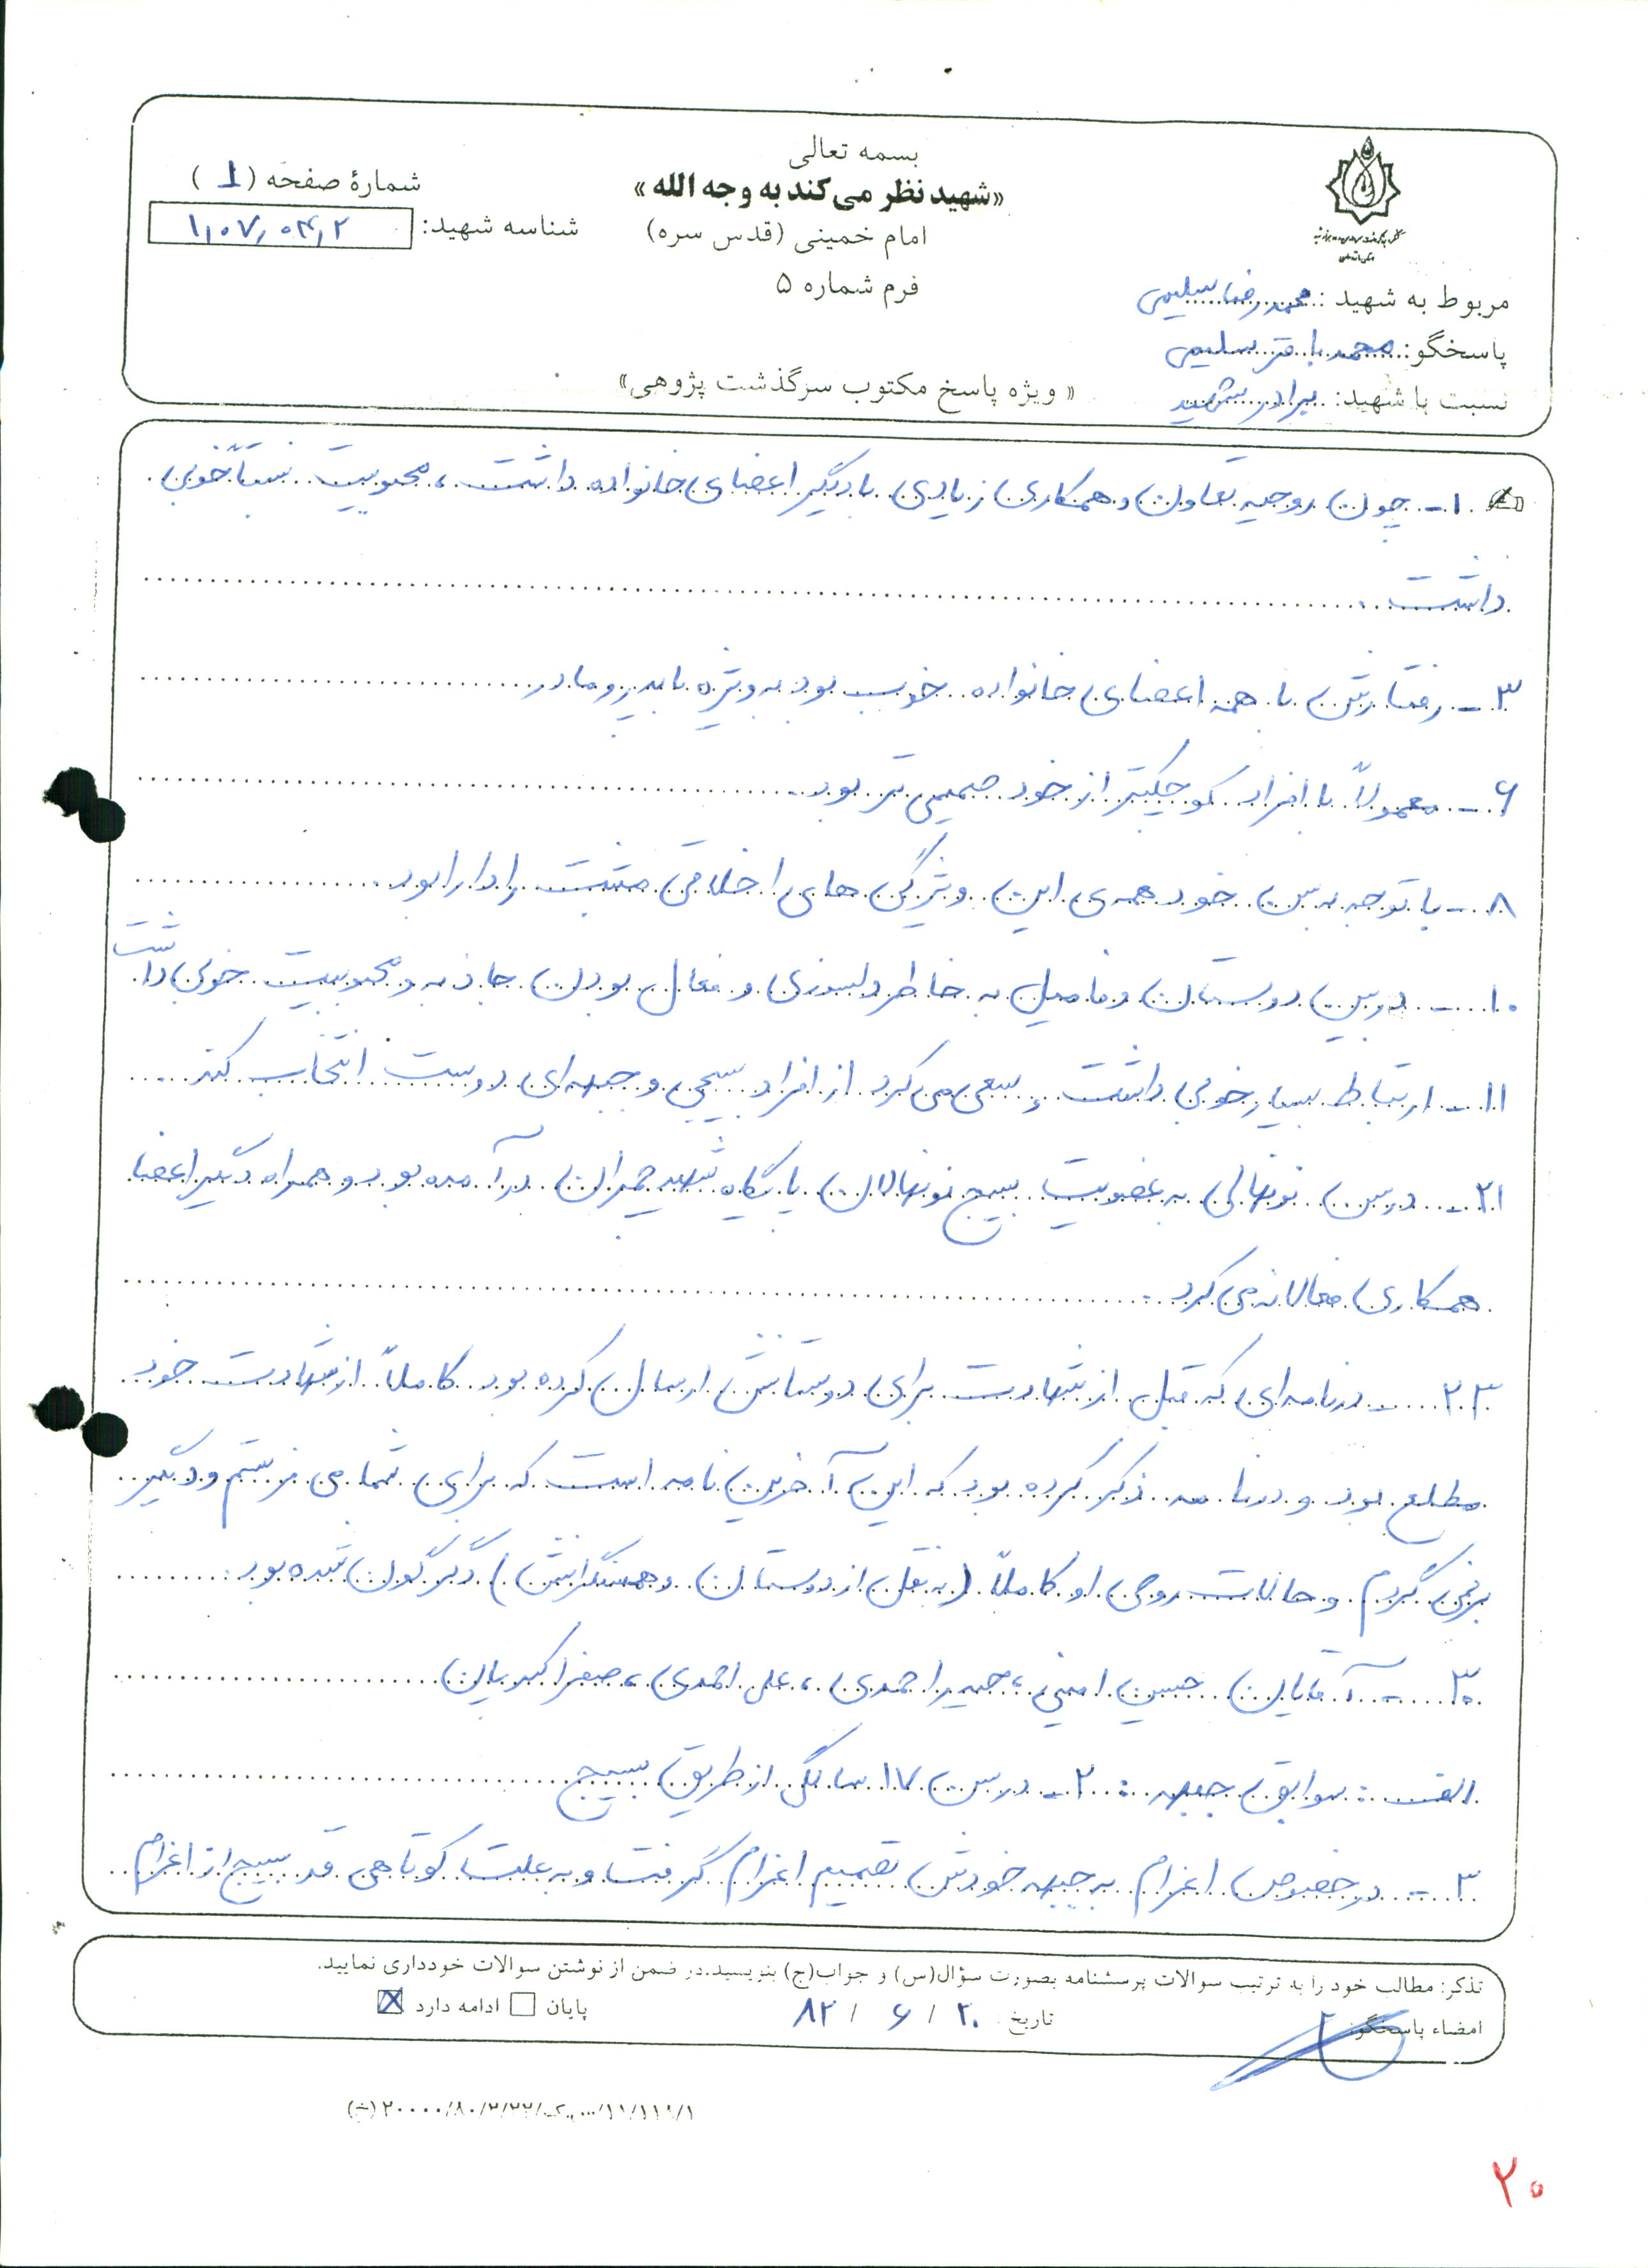 بسمه تعالی
«شهید نظر می‌کند به وجه الله»
امام خمینی (قدس سره)
فرم شماره ۵
شمارهٔ صفحه (1)
شناسه شهید:
مربوط به شهید: محمدرضا سلیمی
پاسخگو: محمد باقر سلیمی
نسبت با شهید: برادر شهید
« ویژه پاسخ مکتوب سرگذشت پژوهی»
۱- چون روحیه تعاون و همکاری زیادی با دیگر اعضای خانواده داشت، محبوبیت نسبتاً خوبی
داشت.
۳- رفتارش با همه اعضای خانواده خوب بود به ویژه با پدر و مادر
۶- معمولاً با افراد کوچکتر از خود صمیمی تر بود.
۸- با توجه به سن خود همه ی این ویژگی های اخلاقی مثبت را دارا بود.
۱۰- در بین دوستان و فامیل به خاطر دلسوزی و فعال بودن جاذبه و محبوبیت خوبی داشت
۱۱- ارتباط بسیار خوبی داشت و سعی می کرد از افراد بسیجی و جبهه ای دوست انتخاب کند.
۲۱- در سن نونهالی به عضویت بسیج نونهالان پایگاه شهید چمران در آمده بود و همراه دیگر اعضا
همکاری فعالانه می کرد.
۲۳- در نامه ای که قبل از شهادت برای دوستانش ارسال کرده بود کاملاً از شهادت خود
مطلع بود و در نامه ذکر کرده بود که این آخرین نامه است که برای شما می فرستم و دیگر
برنمی گردم و حالات روحی او کاملاً (به نقل از دوستان و همسنگرانش) دگرگون شده بود.
۳۰- آقایان حسین امینی، حیدر احمدی، علی احمدی، صفر اکبریان
الف: سوابق جبهه: ۲- در سن ۱۷ سالگی از طریق بسیج
۳- در خصوص اعزام به جبهه خودش تصمیم اعزام گرفت و به علت کوتاهی قد بسیج از اعزام
تذکر: مطالب خود را به ترتیب سوالات پرسشنامه بصورت سؤال(س) و جواب(ج) بنویسید.در ضمن از نوشتن سوالات خودداری نمایید.
امضاء پاسخگو:
تاریخ ۲۰ / ۶ / ۸۲
پایان ادامه دارد
۲۰